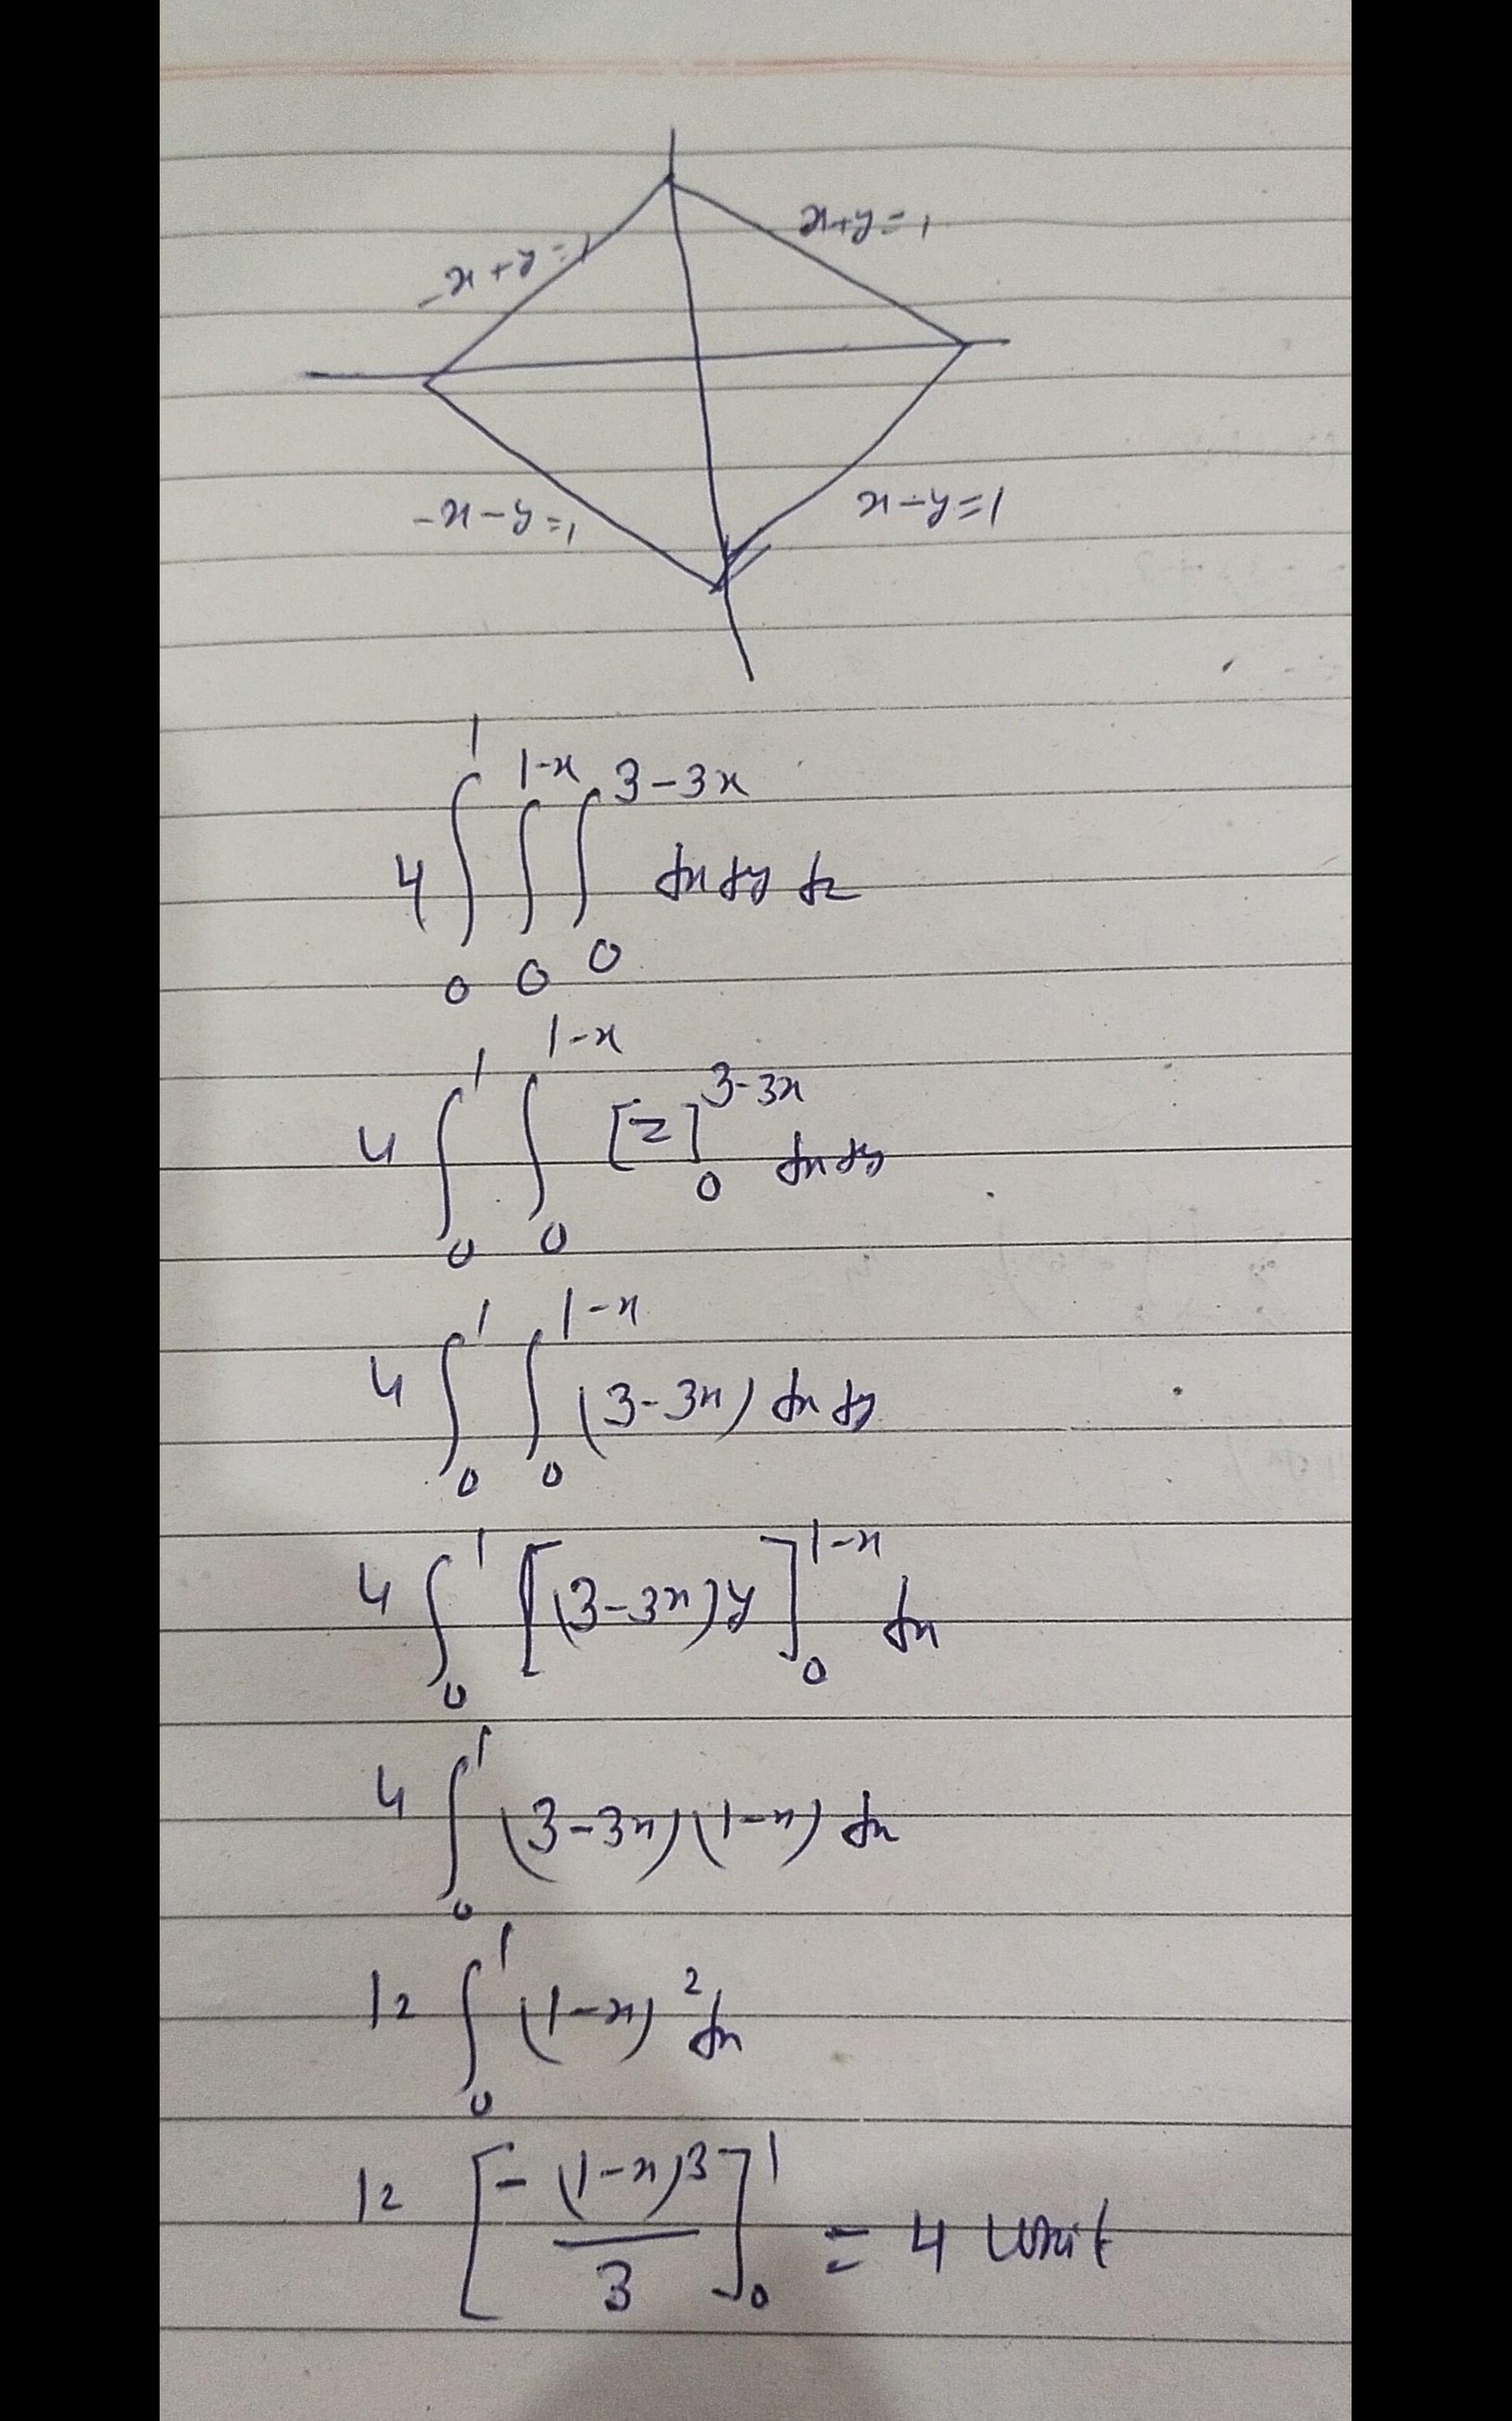 -x+y=1
x+y=1
-x-y=1
x-y=1
4 ∫₀¹ ∫₀^{1-x} ∫₀^{3-3x} dx dy dz
4 ∫₀¹ ∫₀^{1-x} [z]₀^{3-3x} dx dy
4 ∫₀¹ ∫₀^{1-x} (3-3x) dx dy
4 ∫₀¹ [(3-3x)y]₀^{1-x} dx
4 ∫₀¹ (3-3x)(1-x) dx
12 ∫₀¹ (1-x)² dx
12 [-(1-x)³/3]₀¹ = 4 unit